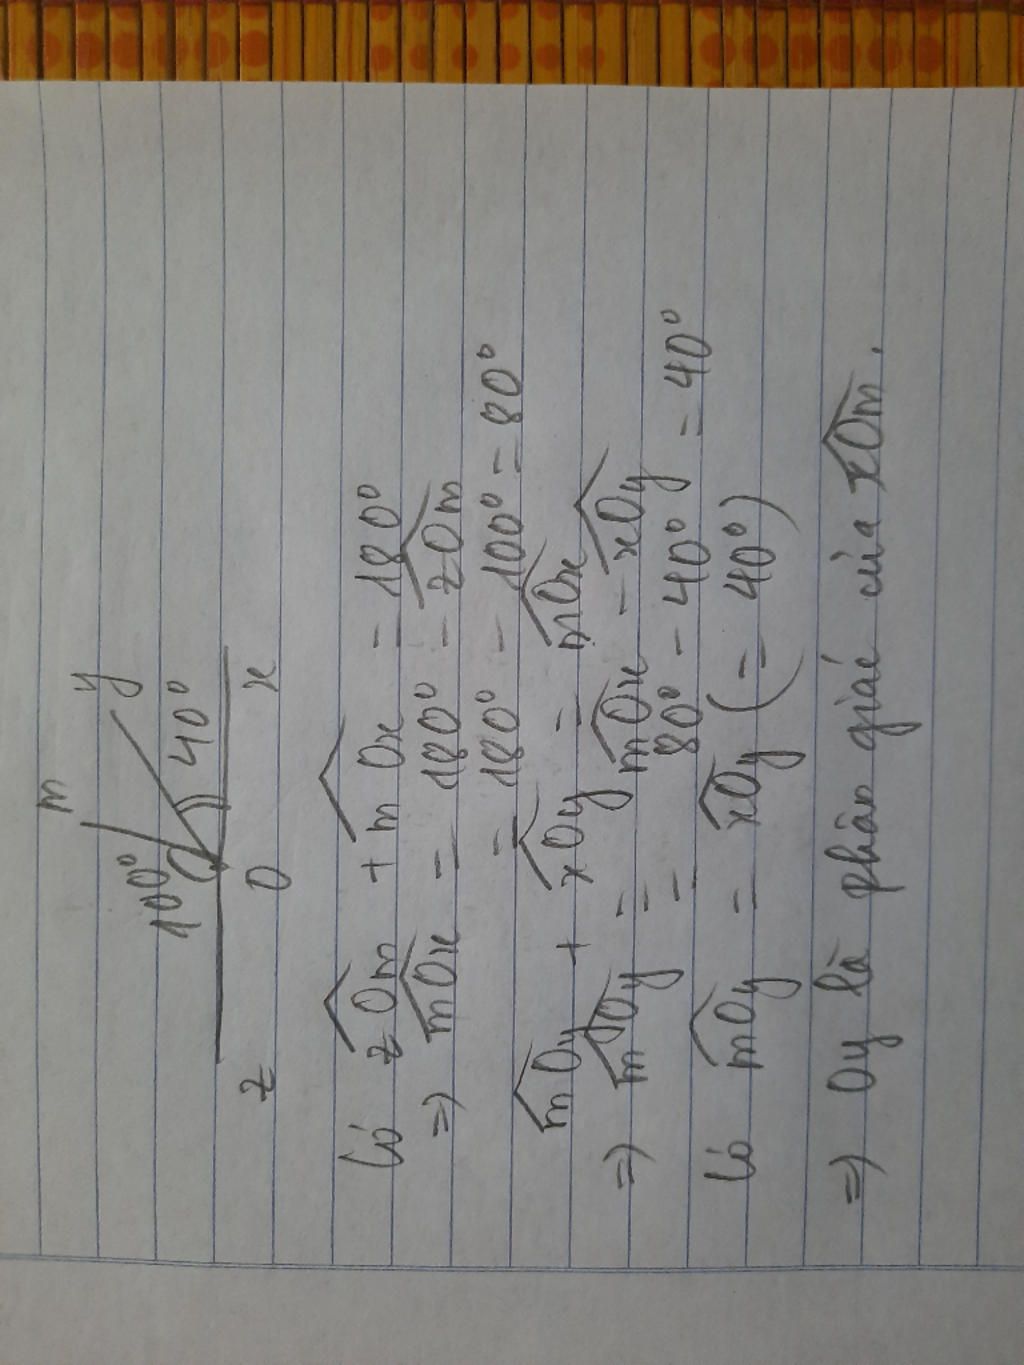 m
y
100°
40°
z
O
x
Có zOm + mOx = 180°
=> mOx = 180° - zOm
= 180° - 100° = 80°
mOy + xOy = mOx
=> mOy = mOx - xOy
= 80° - 40° = 40°
Có mOy = xOy (= 40°)
=> Oy là phân giác của xOm.